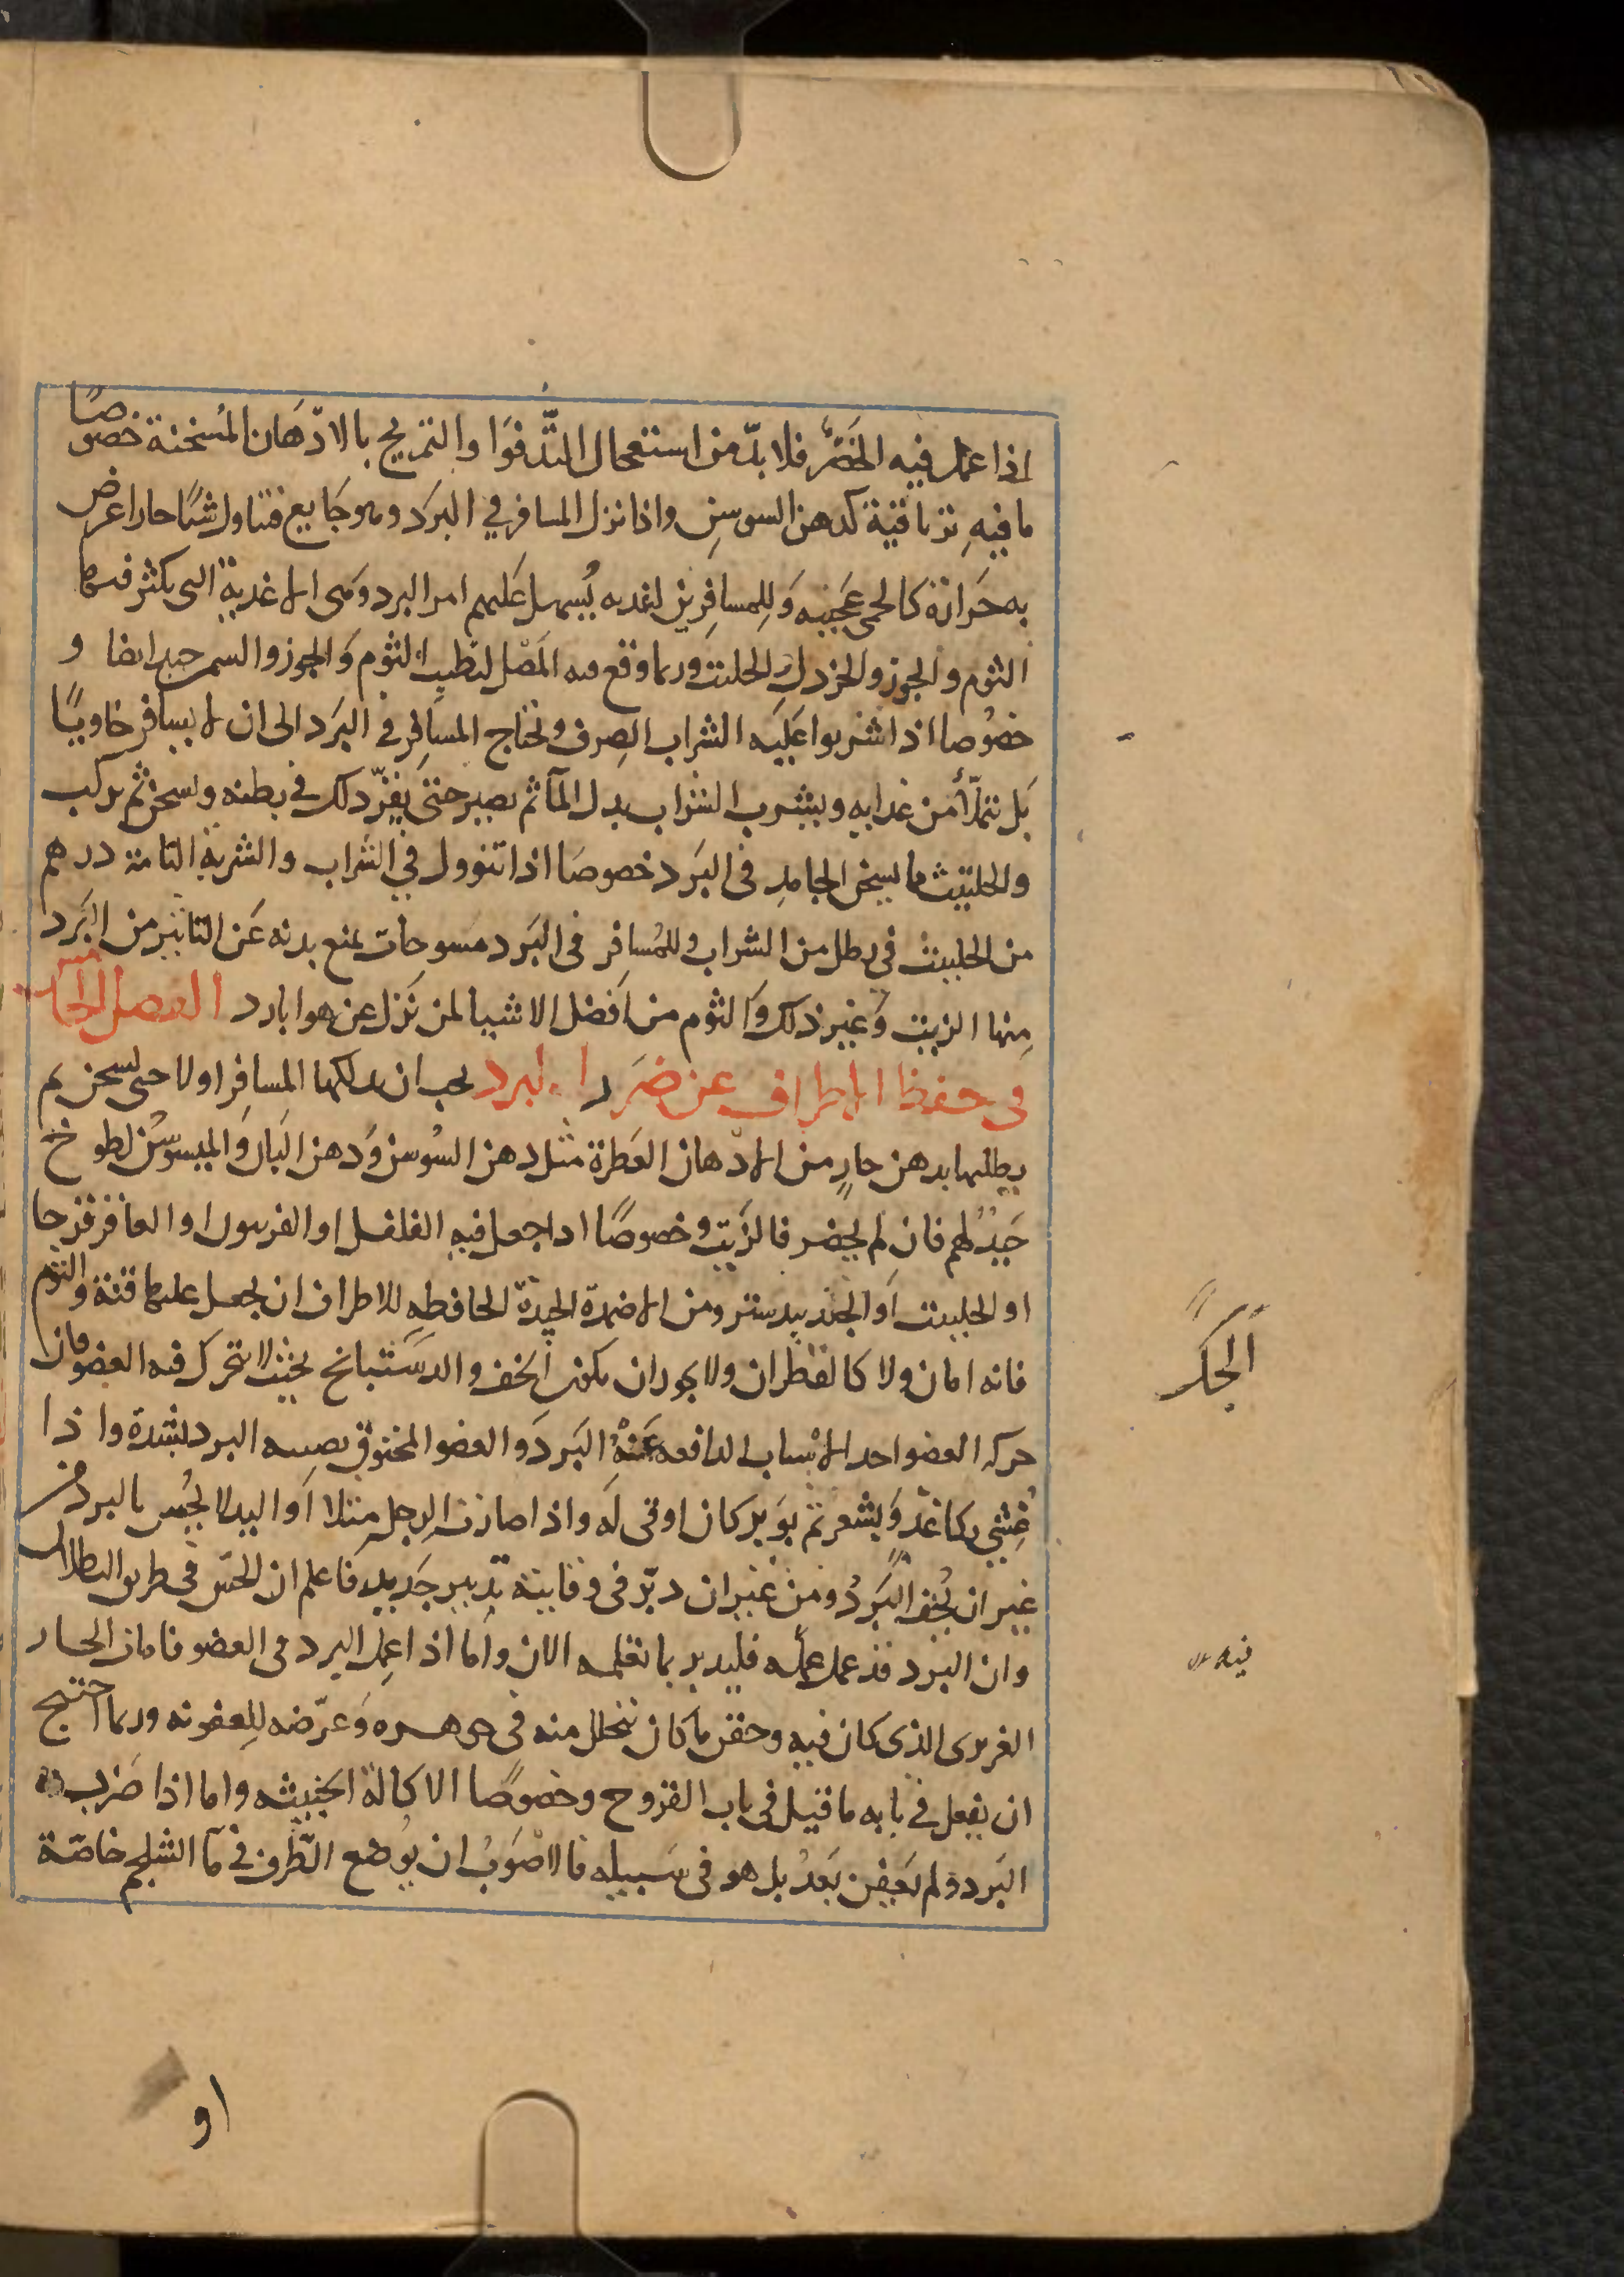 اذا عمل فيه الخضر فلا بدّ من استعمال التدفوا والتمريخ بالادهان المسخنة خصوصًا
ما فيه ترياقية كدهن السوسن واذا نزل المسافر في البرد وهو جايع فتناول شيًا حارا عرض
به حرارة كالحمى عجيبه وللمسافرين اغديه يسهل عليهم امر البرد وهى الاغدية التى يكثر فيها
الثوم والجوز والخردل والحلتيت وربما وقع فيه المصل لتطيب الثوم والجوز والسمن جيد ايضا و
خصوصا اذا شربوا عليه الشراب الصرف ويحتاج المسافر في البرد الى ان لا يسافر خاويًا
بل تملّأ من غدايه ويشرب الشراب بدل المآ ثم يصبر حتى يقرّ ذلك في بطنه ويسخن ثم يركب
والحلتيت ما يسخن الجامد فى البرد خصوصا اذا تنوول في الشراب والشربة التامة درهم
من الحلتيت في رطل من الشراب وللمسافر فى البرد مسوحات تمنع بدنه عن التاثير من البرد
منها الزيت وغير ذلك والثوم من افضل الاشيا لمن نزل عن هوا بارد الفصل الخامس
فى حفظ الاطراف عن ضرر البرد يجب ان يدلكها المسافر اولا حتى تسخن ثم
يطليها بدهن حار من الادهان العطرة مثل دهن السوسن ودهن البان والميسوسن لطوخ
جيد لهم فان لم يحضر فالزيت وخصوصًا اذا جعل فيه الفلفل او الفربيون او العاقر قرحا
او الحلتيت او الجندبيدستر ومن الاضمدة الجيدة الحافظه للاطراف ان يجعل عليها قنة والثوم
فانه امان ولا كالقطران ولا يجوز ان يكون الخف والدستبانج بحيث لا يتحرك فيه العضو فان
حركه العضو احد الاسباب الدافعه عنه البرد والعضو المخنوق يصيبه البرد بشدة واذا
غشي بكاغد وبشعر ثم بوبر كان اوقى له واذا صارت الرجل مثلا او اليد لا يحس بالبرد من
غير ان يخف البرد ومن غير ان دبّر فى وقايته تدبير جديد فاعلم ان الحس فى طريق البطلان
وان البرد قد عمل عمله فليدبر بما تعلمه الان واما اذا عمل البرد فى العضو فامات الحار
الغريزى الذى كان فيه وحقن ما كان يتحلل منه فى جوهره وعرّضه للعفونه وربما احتيج
ان يفعل في بابه ما قيل فى باب القروح وخصوصًا الاكالة الخبيثه واما اذا ضربه
البرد ولم يعفن بعد بل هو فى سبيله فالاصوب ان يوضع الطرف في مآ الثلج خاصّة
الجكر
او